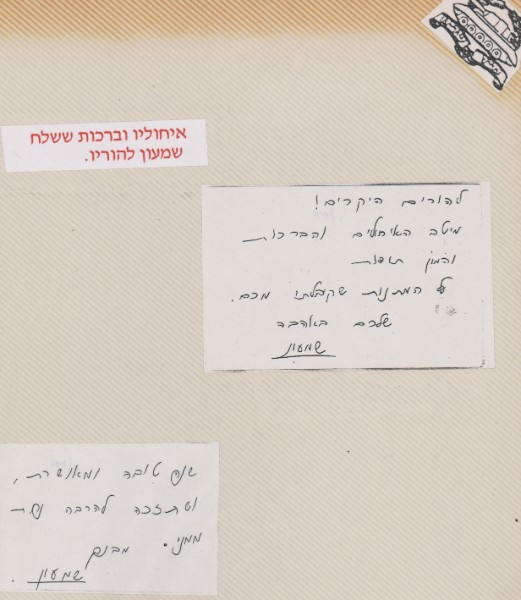 איחוליו וברכות ששלח
שמעון להוריו.
להורים היקרים!
מיטב האיחולים והברכות
והמון תודות
על המתנות שקבלתי מכם.
שלכם באהבה
שמעון
שנה טובה ומאושרת,
ושתזכה להרבה נחת
ממני. מבנך
שמעון.